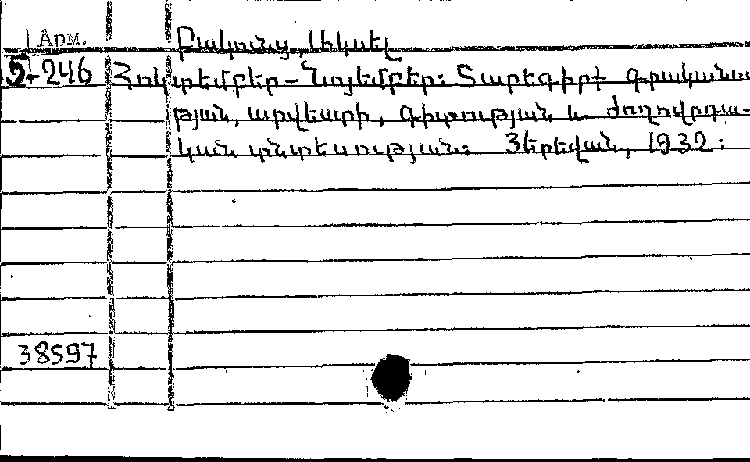 Арм.
Բակունց, Ակսել
5-246 Հոկտեմբեր – Նոյեմբեր: Տարեգիրք գրականու-
թյան, արվեստի, գիտության և ժողովրդա-
կան տնտեսության: Յերեվան, 1932:
38597